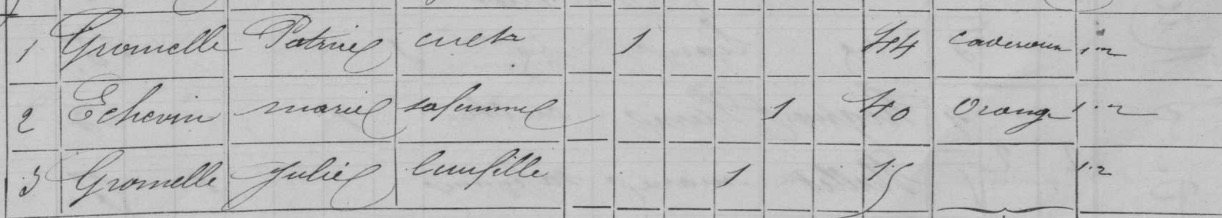 1 Gromelle Patrice cult 1 44 Caderousse 1·2
2 Echevin marie sa femme 1 40 Orange 1·2
3 Gromelle Julie leur fille 1 15 1·2